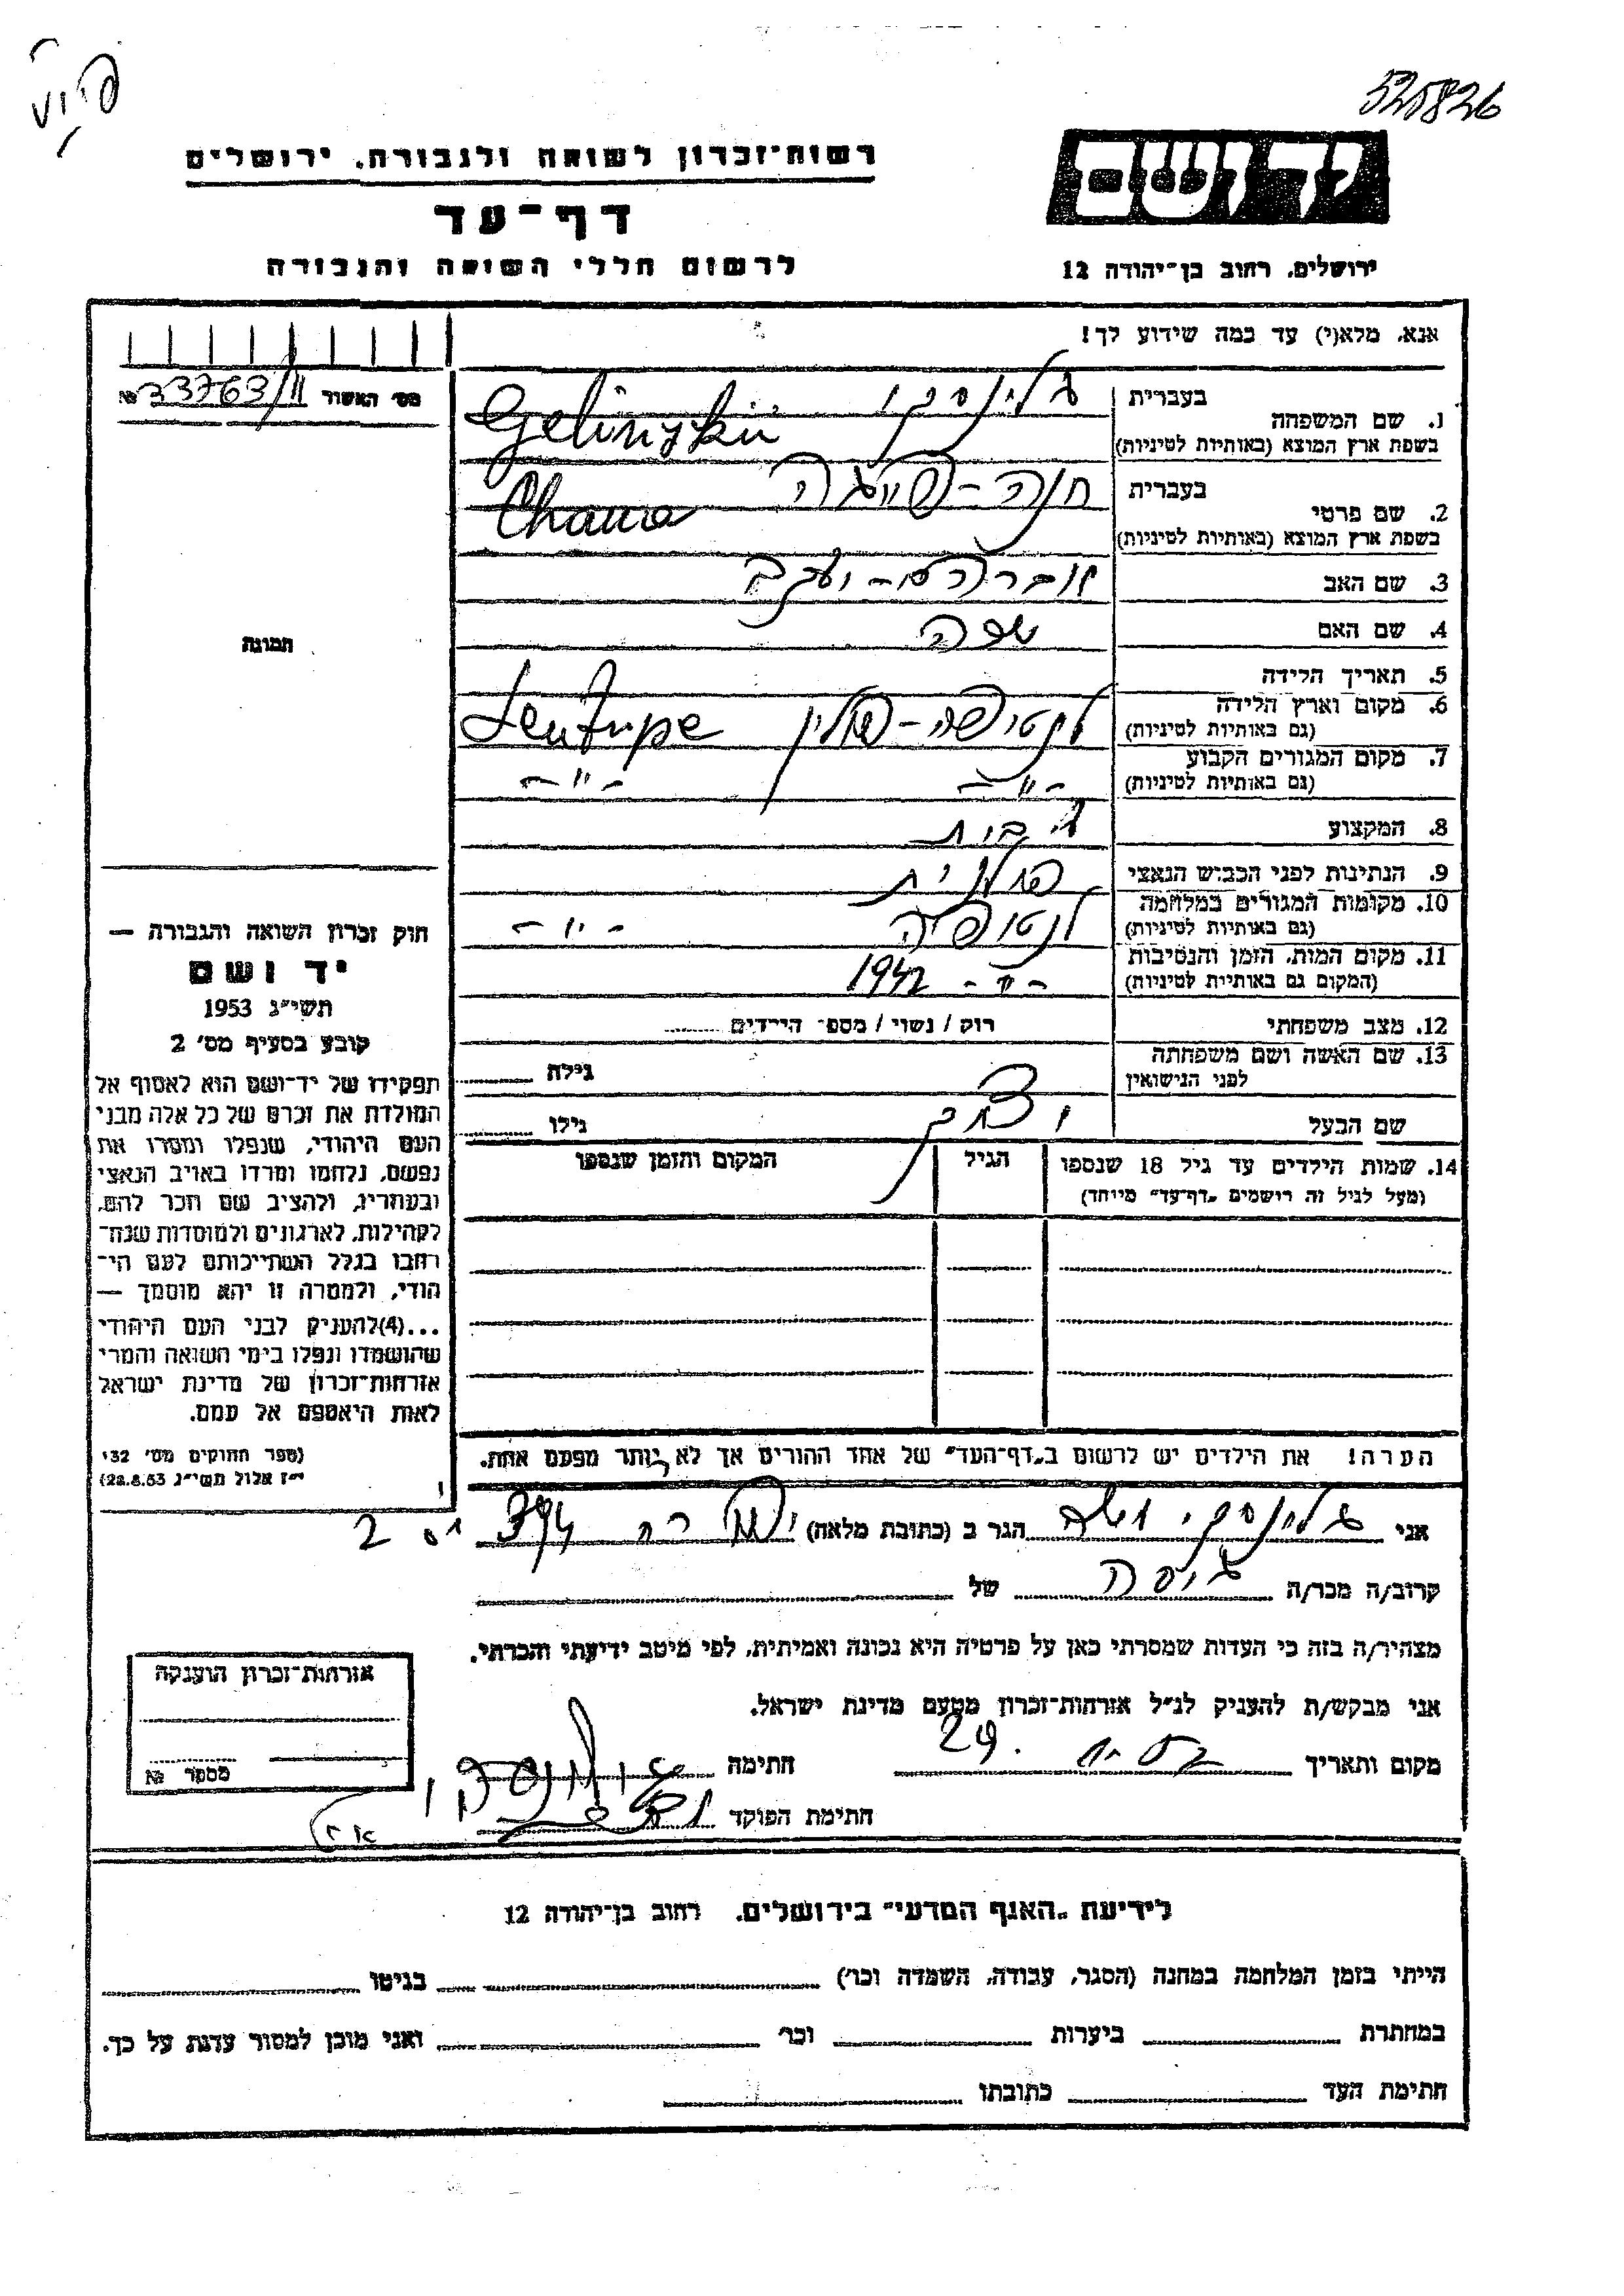 525826
יד ושם
ירושלים, רחוב בן־יהודה 12
רשות־זכרון לשואה ולגבורה, ירושלים
דף־עד
לרשום חללי השואה והגבורה
אנא, מלא(י) עד כמה שידוע לך!
מס׳ האשור 33763/II №
1. שם המשפחה בעברית גלינסקי
בשפת ארץ המוצא (באותיות לטיניות) Gelinski
2. שם פרטי בעברית חנה-פייגה
בשפת ארץ המוצא (באותיות לטיניות) Chana
3. שם האב יעקב
4. שם האם
5. תאריך הלידה
6. מקום וארץ הלידה פולין Lentupe
(גם באותיות לטיניות)
7. מקום המגורים הקבוע -״- -״-
(גם באותיות לטיניות)
8. המקצוע
9. הנתינות לפני הכבוש הנאצי פולנית
10. מקומות המגורים במלחמה לנטופה -״-
(גם באותיות לטיניות)
11. מקום המות, הזמן והנסיבות -״- 1942
(המקום גם באותיות לטיניות)
12. מצב משפחתי רוק / נשוי / מספר הילדים
13. שם האשה ושם משפחתה לפני הנישואין גילה
שם הבעל יצחק גילו
14. שמות הילדים עד גיל 18 שנספו הגיל המקום והזמן שנספו
(מעל לגיל זה רושמים „דף־עד״ מיוחד)
הערה! את הילדים יש לרשום ב„דף־העד״ של אחד ההורים אך לא יותר מפעם אחת.
תמונה
חוק זכרון השואה והגבורה —
יד ושם
תשי״ג 1953
קובע בסעיף מס׳ 2
תפקידו של יד־ושם הוא לאסוף אל
המולדת את זכרם של כל אלה מבני
העם היהודי, שנפלו ומסרו את
נפשם, נלחמו ומרדו באויב הנאצי
ובעוזריו, ולהציב שם וזכר להם,
לקהילות, לארגונים ולמוסדות שנח־
רבו בגלל השתייכותם לעם הי־
הודי, ולמטרה זו יהא מוסמך —
...(4)להעניק לבני העם היהודי
שהושמדו ונפלו בימי השואה והמרי
אזרחות־זכרון של מדינת ישראל
לאות היאספם אל עמם.
(ספר החוקים מס׳ 132
י״ז אלול תשי״ג 28.8.53)
אני גלינסקי הגר ב (כתובת מלאה)
קרוב/ה מכר/ה גיסה של
מצהיר/ה בזה כי העדות שמסרתי כאן על פרטיה היא נכונה ואמיתית, לפי מיטב ידיעתי והכרתי.
אני מבקש/ת להעניק לנ״ל אזרחות־זכרון מטעם מדינת ישראל.
מקום ותאריך חתימה גלינסקי
חתימת הפוקד
אזרחות־זכרון הוענקה
מספר №
לידיעת „האגף המדעי״ בירושלים, רחוב בן־יהודה 12
הייתי בזמן המלחמה במחנה (הסגר, עבודה, השמדה וכו׳) בגיטו
במחתרת ביערות וכו׳ ואני מוכן למסור עדות על כך.
חתימת העד כתובתו